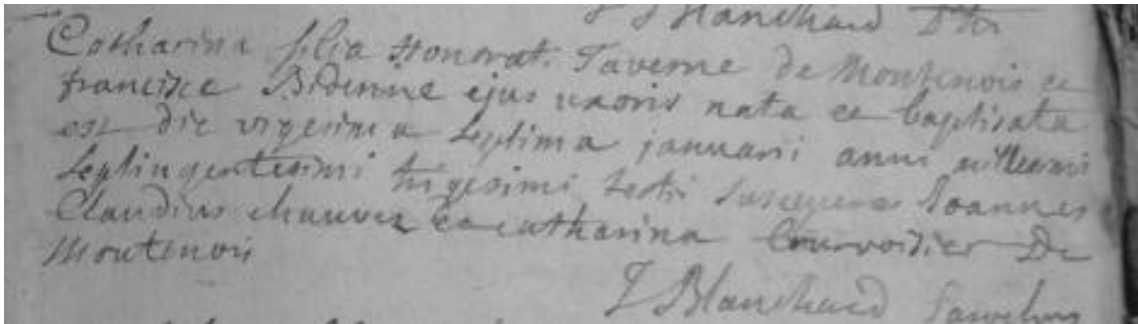 J Blanchard
Catharina filia honorat. Taverne de Montenois et
francisce Bidenne ejus uxoris nata et baptisata
est die vigesima septima januarii anni millesimi
septingentesimi trigesimi sexti suscepere Joannes
Claudius chauvez et catharina Courvoisier De
Montenois
J Blanchard